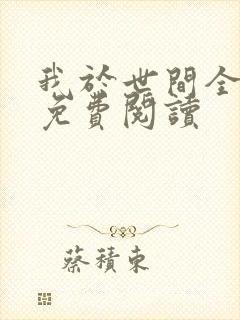 我於世間全
免費閱讀
蔡積東